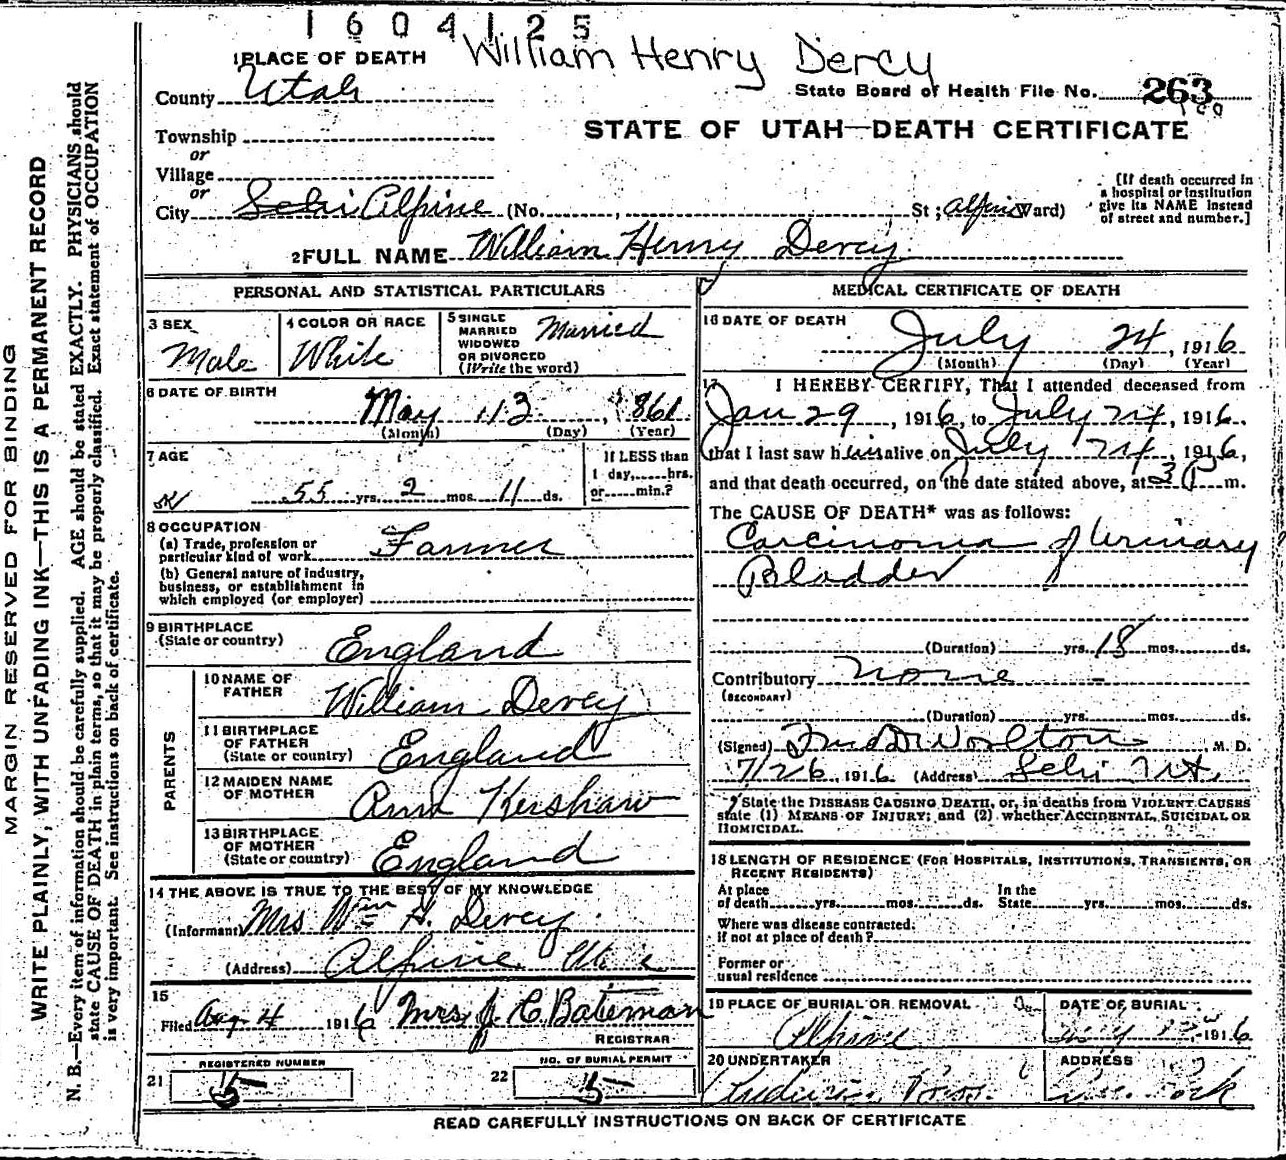 1604125
William Henry Dercy
1 PLACE OF DEATH
County Utah
State Board of Health File No. 263
STATE OF UTAH—DEATH CERTIFICATE
Township
or
Village
or
City Lehi Alpine (No. , St; Alpine Ward)
[If death occurred in
a hospital or institution
give its NAME instead
of street and number.]
2 FULL NAME William Henry Dercy
PERSONAL AND STATISTICAL PARTICULARS
3 SEX
Male
4 COLOR OR RACE
White
5 SINGLE
MARRIED
WIDOWED
OR DIVORCED
(Write the word)
Married
6 DATE OF BIRTH
May 13, 1861
(Month) (Day) (Year)
7 AGE
55 yrs. 2 mos. 11 ds.
If LESS than
1 day, hrs.
or min.?
8 OCCUPATION
(a) Trade, profession or
particular kind of work Farmer
(b) General nature of industry,
business, or establishment in
which employed (or employer)
9 BIRTHPLACE
(State or country) England
PARENTS
10 NAME OF
FATHER William Dercy
11 BIRTHPLACE
OF FATHER
(State or country) England
12 MAIDEN NAME
OF MOTHER Ann Kershaw
13 BIRTHPLACE
OF MOTHER
(State or country) England
14 THE ABOVE IS TRUE TO THE BEST OF MY KNOWLEDGE
(Informant) Mrs Wm H. Dercy
(Address) Alpine
15
Filed Aug 4 1916 Mrs J. C. Bateman
REGISTRAR
21 REGISTERED NUMBER
5
22 NO. OF BURIAL PERMIT
5
MEDICAL CERTIFICATE OF DEATH
16 DATE OF DEATH
July 24, 1916
(Month) (Day) (Year)
17 I HEREBY CERTIFY, That I attended deceased from
Jan 29, 1916, to July 24, 1916,
that I last saw him alive on July 24, 1916,
and that death occurred, on the date stated above, at 3 P m.
The CAUSE OF DEATH* was as follows:
Carcinoma of Urinary
Bladder
(Duration) yrs. 18 mos. ds.
Contributory None
(SECONDARY)
(Duration) yrs. mos. ds.
(Signed) Worlton M. D.
7/26, 1916 (Address) Lehi Ut.
* State the DISEASE CAUSING DEATH, or, in deaths from VIOLENT CAUSES
state (1) MEANS OF INJURY; and (2) whether ACCIDENTAL, SUICIDAL OR
HOMICIDAL.
18 LENGTH OF RESIDENCE (FOR HOSPITALS, INSTITUTIONS, TRANSIENTS, OR
RECENT RESIDENTS)
At place
of death yrs. mos. ds.
In the
State yrs. mos. ds.
Where was disease contracted,
if not at place of death?
Former or
usual residence
19 PLACE OF BURIAL OR REMOVAL
Alpine
DATE OF BURIAL
1916
20 UNDERTAKER
ADDRESS
READ CAREFULLY INSTRUCTIONS ON BACK OF CERTIFICATE
MARGIN RESERVED FOR BINDING
WRITE PLAINLY, WITH UNFADING INK—THIS IS A PERMANENT RECORD
N. B.—Every item of information should be carefully supplied. AGE should be stated EXACTLY. PHYSICIANS should
state CAUSE OF DEATH in plain terms, so that it may be properly classified. Exact statement of OCCUPATION
is very important. See instructions on back of certificate.